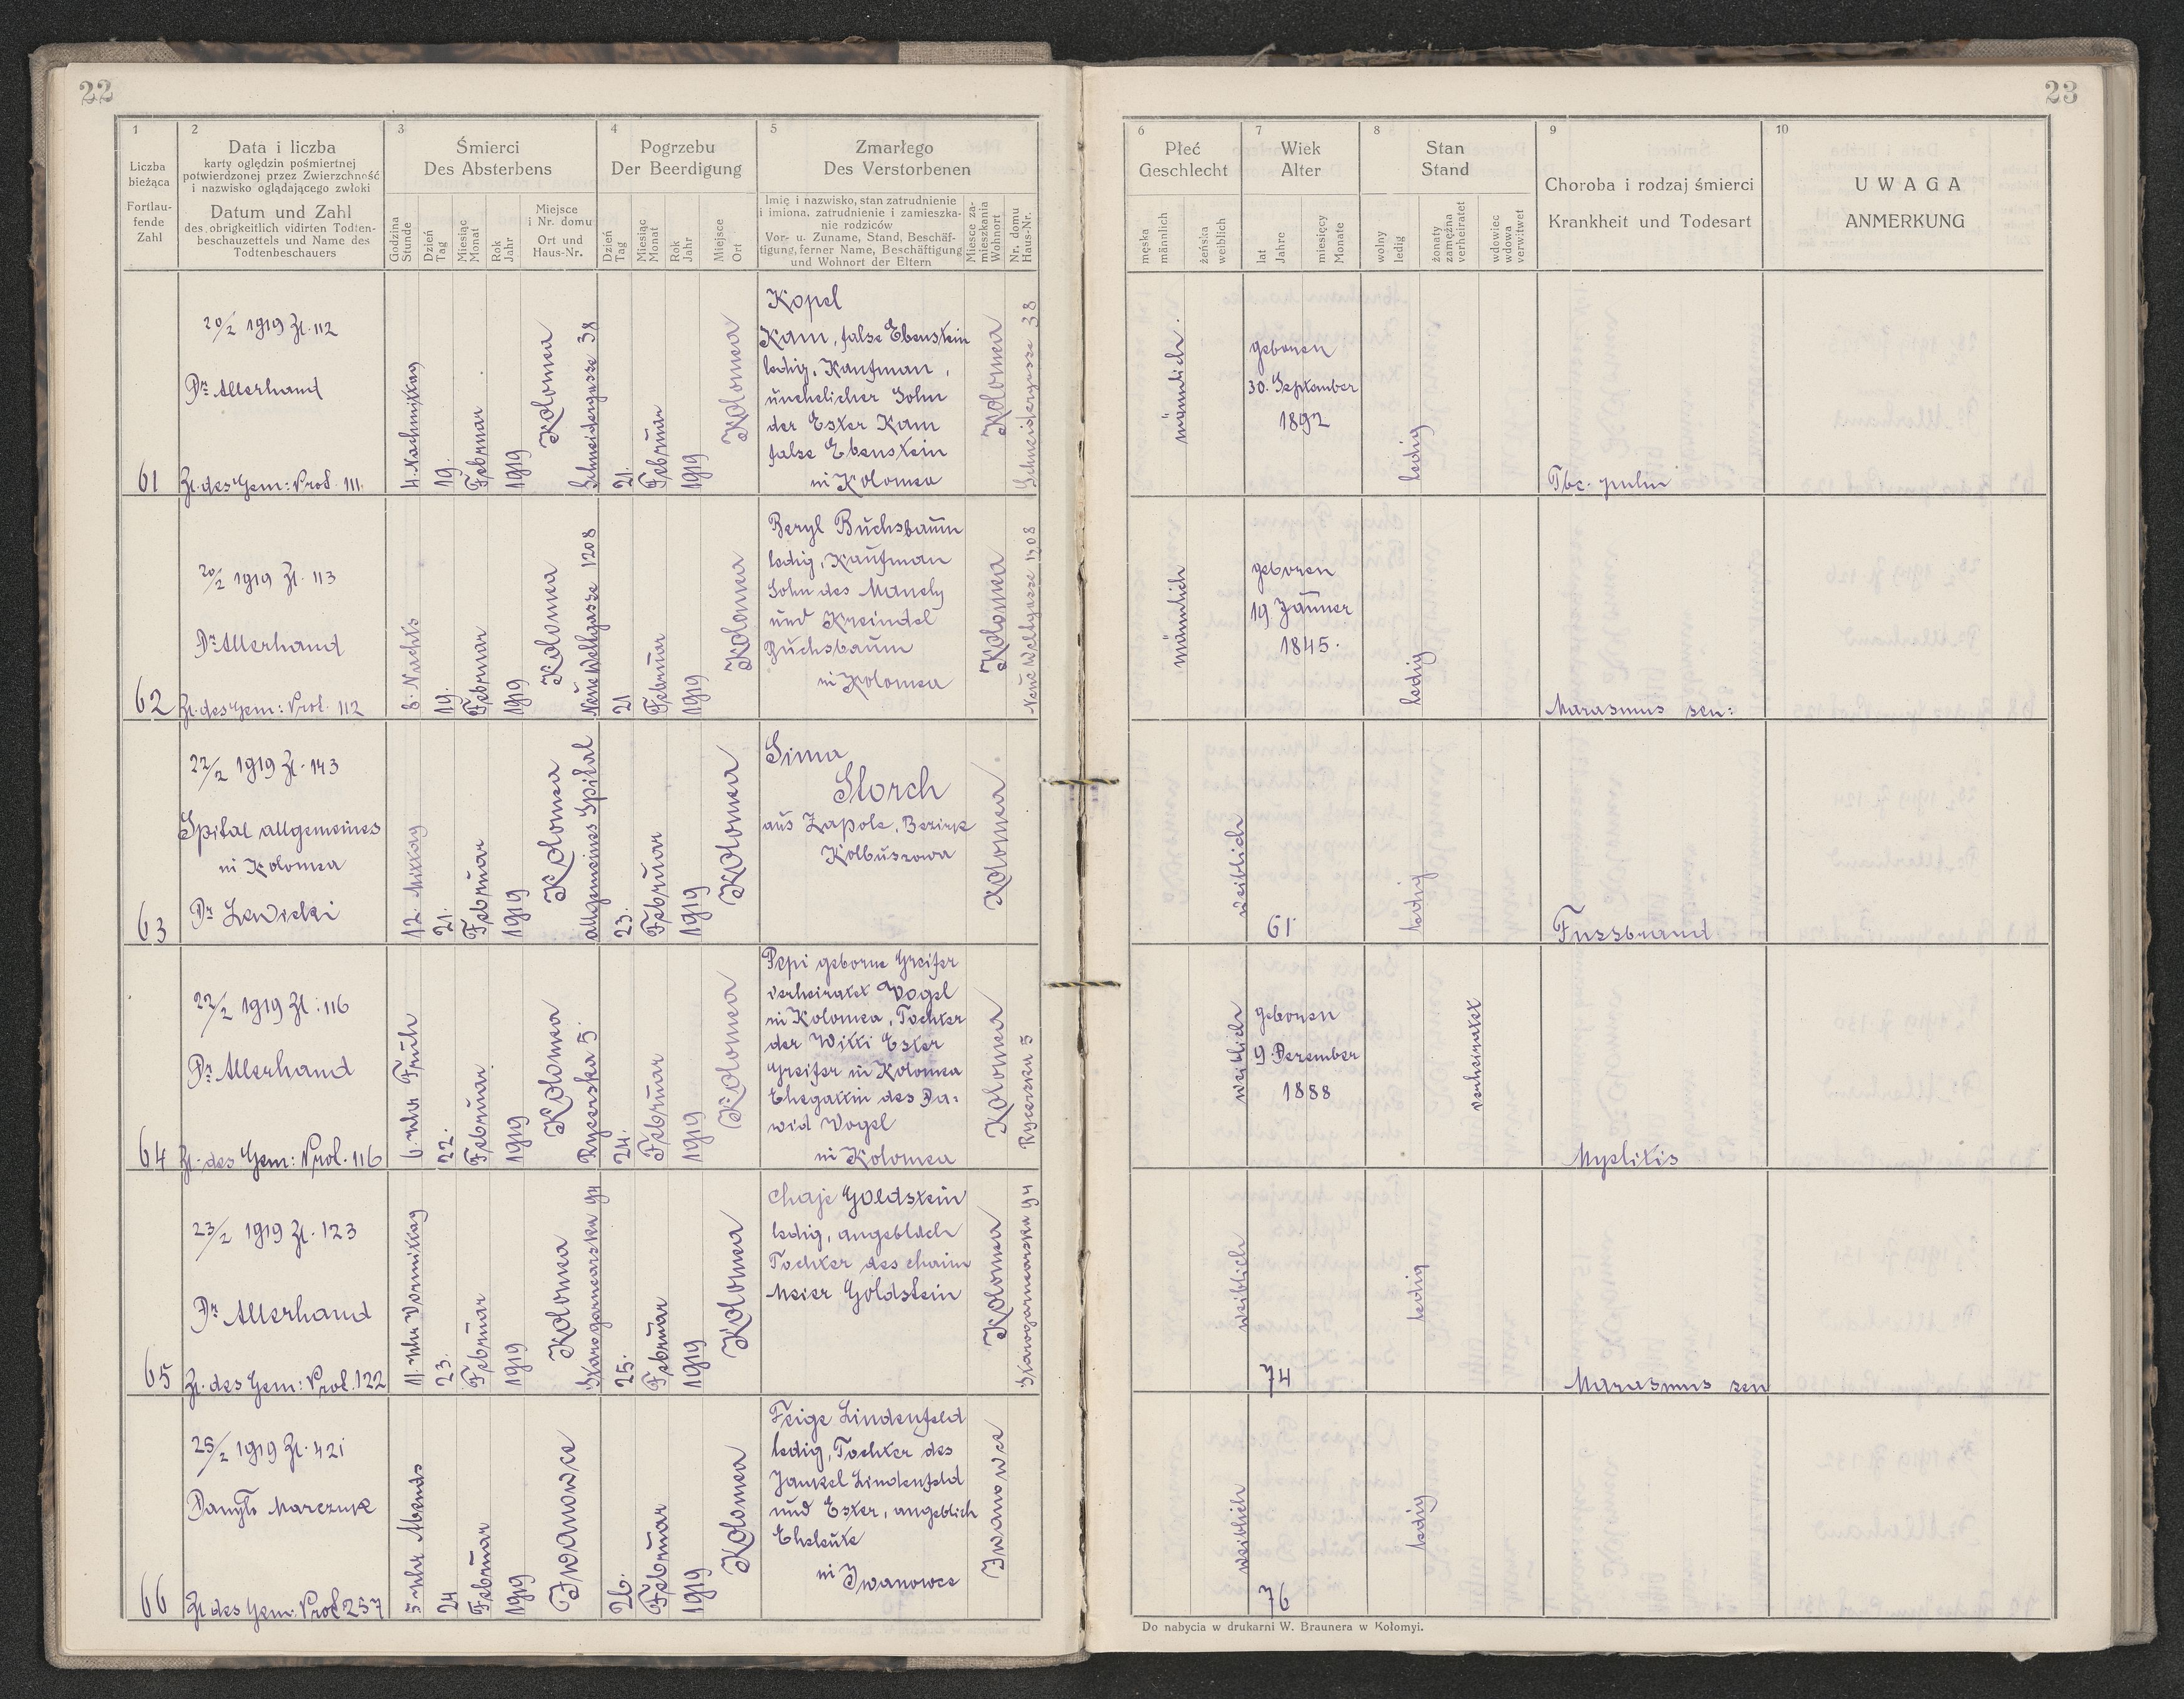 22
23
1
Liczba
bieżąca
Fortlau-
fende
Zahl
2
Data i liczba
karty oględzin pośmiertnej
potwierdzonej przez Zwierzchność
i nazwisko oglądającego zwłoki
Datum und Zahl
des obrigkeitlich vidirten Todten-
beschauzettels und Name des
Todtenbeschauers
3
Śmierci
Des Absterbens
Godzina
Stunde
Dzień
Tag
Miesiąc
Monat
Rok
Jahr
Miejsce
i Nr. domu
Ort und
Haus-Nr.
4
Pogrzebu
Der Beerdigung
Dzień
Tag
Miesiąc
Monat
Rok
Jahr
Miejsce
Ort
5
Zmarłego
Des Verstorbenen
Imię i nazwisko, stan zatrudnienie
i imiona, zatrudnienie i zamieszka-
nie rodziców
Vor- u. Zuname, Stand, Beschäf-
tigung, ferner Name, Beschäftigung
und Wohnort der Eltern
Miesce za-
mieszkania
Wohnort
Nr. domu
Haus-Nr.
6
Płeć
Geschlecht
męska
männlich
żeńska
weiblich
7
Wiek
Alter
lat
Jahre
miesięcy
Monate
8
Stan
Stand
wolny
ledig
żonaty
zamężna
verheiratet
wdowiec
wdowa
verwitwet
9
Choroba i rodzaj śmierci
Krankheit und Todesart
10
UWAGA
ANMERKUNG
61
20/2 1919 Zl. 112
Dr Allerhand
Zl. des Gem: Prot. 111.
4. Nachmittag
19.
Februar
1919
Kolomea
Schneidergasse 38
21.
Februar
1919
Kolomea
Kopel
Kam, false Ebenstein
ledig, Kaufman,
unehelicher Sohn
der Ester Kam
false Ebenstein
in Kolomea
Kolomea
Schneidergasse 38
männlich.
geboren
30. September
1892
ledig
Tbc. pulm
62
20/2 1919 Zl. 113
Dr Allerhand
Zl. des Gem: Prot. 112
8. Nachts
19.
Februar
1919
Kolomea
Neue Weltgasse 1208
21
Februar
1919
Kolomea
Beryl Buchsbaum
ledig, Kaufman
Sohn des Manely
und Kreindel
Buchsbaum
in Kolomea
Kolomea
Neue Weltgasse 1208
männlich
geboren
19 Jänner
1845.
ledig
Marasmus sen:
63
22/2 1919 Zl. 143
Spital allgemeines
in Kolomea
Dr Lewicki
12. Mittag
21.
Februar
1919
Kolomea
allgemeines Spital
23.
Februar
1919
Kolomea
Sima
Storch
aus Zapole, Bezirk
Kolbuszowa
Kolomea
weiblich
61
ledig
Fussbrand
64
22/2 1919 Zl: 116
Dr Allerhand
Zl. des Gem: Prot. 116
6. Uhr Früh
22.
Februar
1919
Kolomea
Rycerska 5.
24.
Februar
1919
Kolomea
Pepi geborne Greifer
verheiratet Vogel
in Kolomea, Tochter
der Witti Ester
Greifer in Kolomea
Ehegattin des Da-
wid Vogel
in Kolomea
Kolomea
Rycerska 5
weiblich
geboren
9. Dezember
1888
verheiratet
Myelitis
65
23/2 1919 Zl. 123
Dr Allerhand
Zl. des Gem: Prot. 122
11. Uhr Vormittag
23.
Februar
1919
Kolomea
Starogarncarska 94
25.
Februar
1919
Kolomea
Chaje Goldstein
ledig, angeblich
Tochter des Chaim
Meier Goldstein
Kolomea
Starogarncarska 94
weiblich
74
ledig
Marasmus sen
66
25/2 1919 Zl. 421
Danyło Marczuk
Zl des Gem. Prot 257
5 Uhr Abends
24
Februar
1919
Iwanowce
26.
Februar
1919
Kolomea
Feige Lindenfeld
ledig, Tochter des
Jankel Lindenfeld
und Ester, angeblich
Eheleute
in Iwanowce
Iwanowce
weiblich
76
ledig
Do nabycia w drukarni W. Braunera w Kołomyi.